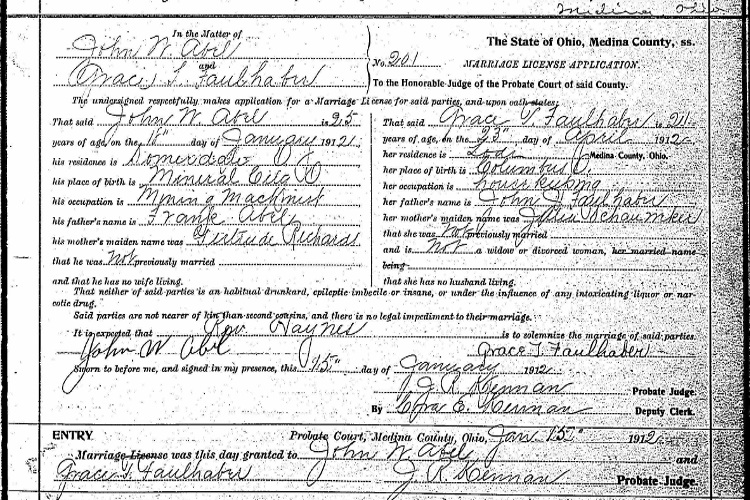 Medina Ohio
In the Matter of
John W. Abel
and
Grace I. Faulhaber
No. 201
The State of Ohio, Medina County, ss.
MARRIAGE LICENSE APPLICATION.
To the Honorable Judge of the Probate Court of said County.
The undersigned respectfully makes application for a Marriage License for said parties, and upon oath states:
That said John W. Abel is 25
years of age, on the day of January 1912
his residence is O.
his place of birth is Mineral City O
his occupation is Mining Machinist
his father's name is Frank Abel
his mother's maiden name was Gertrude Richards
that he was Not previously married
and that he has no wife living.
That said Grace I. Faulhaber is 21
years of age, on the 23" day of April 1912
her residence is Lodi Medina County, Ohio.
her place of birth is Columbus O.
her occupation is housekeeping
her father's name is John J. Faulhaber
her mother's maiden name was Julia
that she was Not previously married
and is Not a widow or divorced woman, her married name
being
that she has no husband living.
That neither of said parties is an habitual drunkard, epileptic imbecile or insane, or under the influence of any intoxicating liquor or nar-
cotic drug.
Said parties are not nearer of kin than second cousins, and there is no legal impediment to their marriage.
It is expected that Rev Haynes is to solemnize the marriage of said parties.
John W Abel
Grace I. Faulhaber
Sworn to before me, and signed in my presence, this 15" day of January 1912
J. R. Kennan Probate Judge.
By E. Kennan Deputy Clerk.
ENTRY. Probate Court, Medina County, Ohio, Jan 15" 1912
Marriage License was this day granted to John W. Abel and
Grace I. Faulhaber J. R. Kennan Probate Judge.